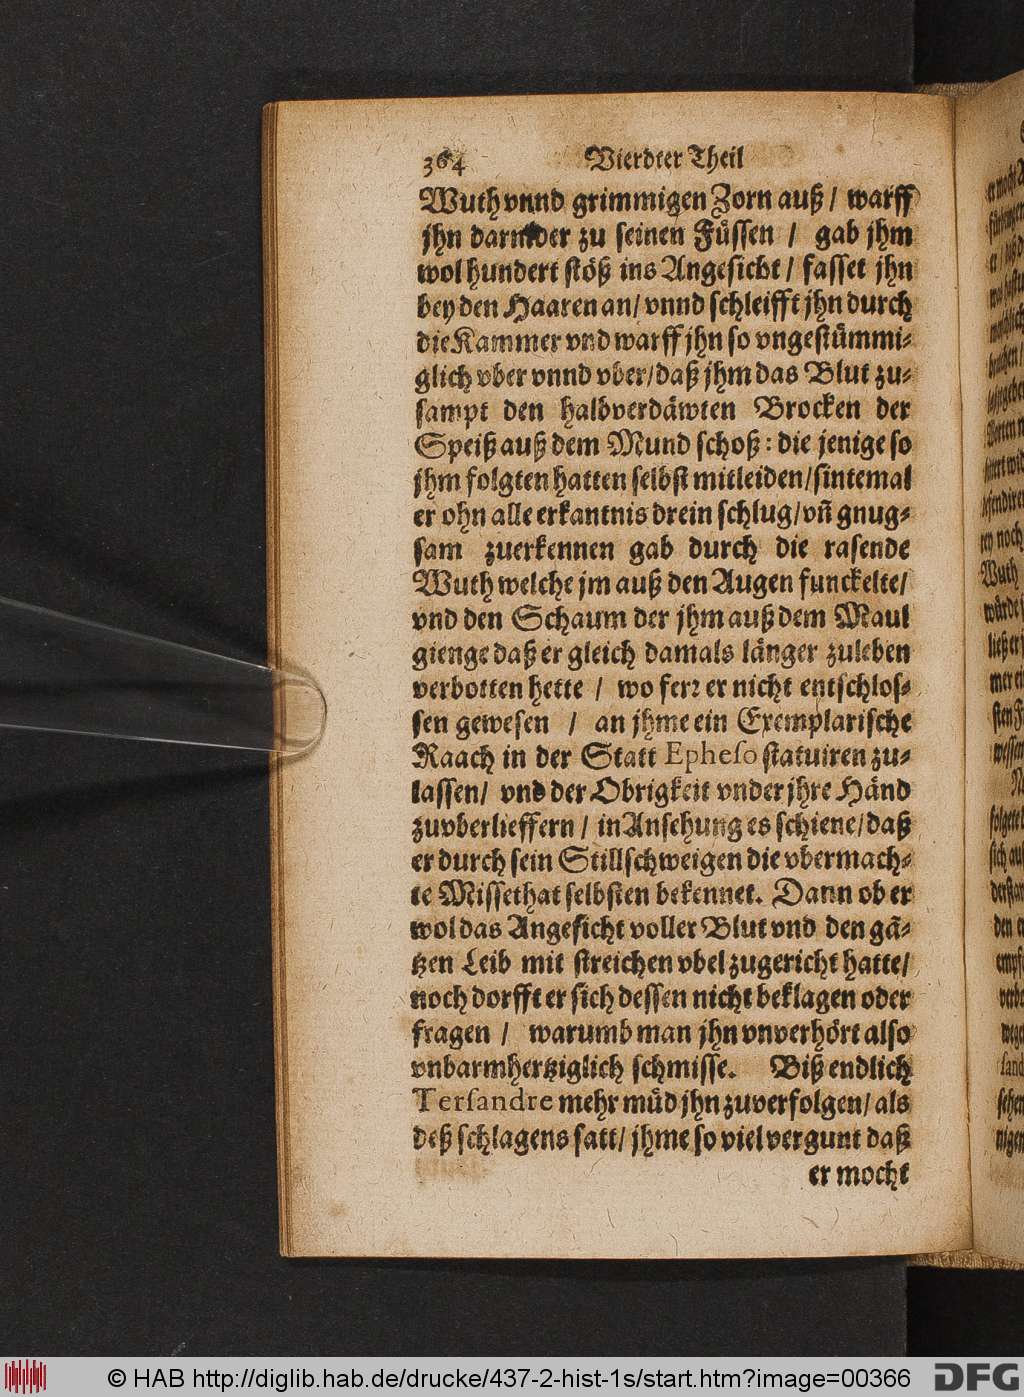 364 Vierdter Theil
Wuth vnnd grimmigen Zorn auß / warff
jhn darnider zu seinen Füssen / gab jhm
wol hundert stöß ins Angesicht / fasset jhn
bey den Haaren an / vnnd schleifft jhn durch
die Kammer vnd warff jhn so vngestümmi-
glich vber vnnd vber / daß jhm das Blut zu-
sampt den halbverdäwten Brocken der
Speiß auß dem Mund schoß : die jenige so
jhm folgten hatten selbst mitleiden / sintemal
er ohn alle erkantnis drein schlug / vñ gnug-
sam zuerkennen gab durch die rasende
Wuth welche jm auß den Augen funckelte /
vnd den Schaum der jhm auß dem Maul
gienge daß er gleich damals länger zuleben
verbotten hette / wo ferꝛ er nicht entschlos-
sen gewesen / an jhme ein Exemplarische
Raach in der Statt Epheso statuiren zu-
lassen / vnd der Obrigkeit vnder jhre Händ
zuvberlieffern / in Ansehung es schiene / daß
er durch sein Stillschweigen die vbermach-
te Missethat selbsten bekennet. Dann ob er
wol das Angesicht voller Blut vnd den gã-
tzen Leib mit streichen vbel zugericht hatte /
noch dorfft er sich dessen nicht beklagen oder
fragen / warumb man jhn vnverhört also
vnbarmhertziglich schmisse. Biß endlich
Tersandre mehr müd jhn zuverfolgen / als
deß schlagens satt / jhme so viel vergunt daß
er mocht
© HAB http://diglib.hab.de/drucke/437-2-hist-1s/start.htm?image=00366
DFG